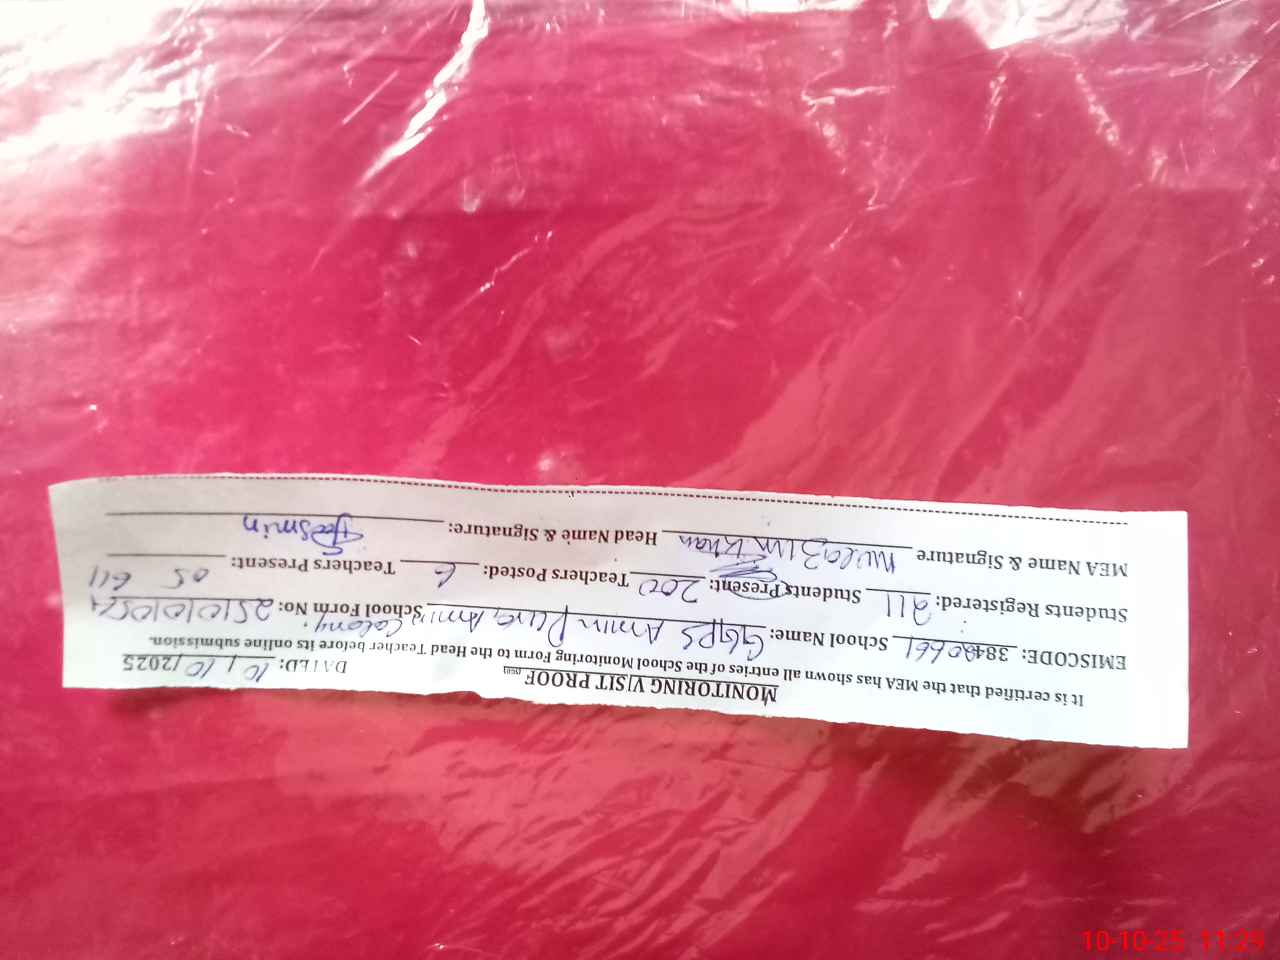 MONITORING VISIT PROOF
DATED: 10/10/2025
It is certified that the MEA has shown all entries of the School Monitoring Form to the Head Teacher before its online submission.
EMISCODE: School Name: GGPS Amin Pura, Amin Colony. School Form No:
Students Registered: 211 Students Present: 200 Teachers Posted: 6 Teachers Present: 05
MEA Name & Signature Khan Head Name & Signature:
10-10-25 11:29